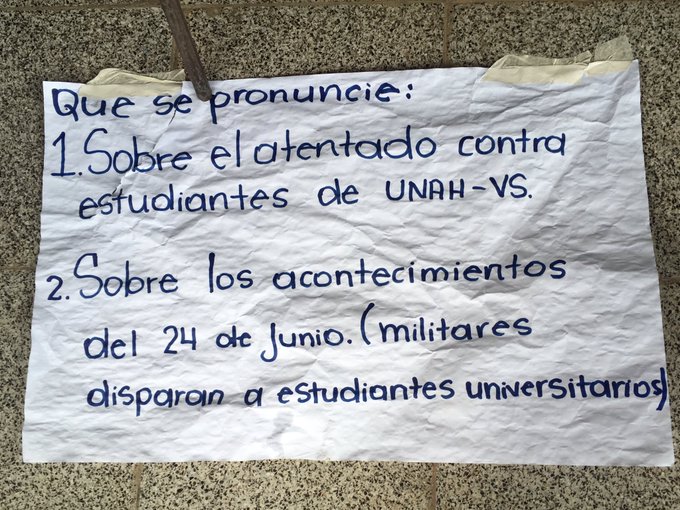 Que se pronuncie:
1. Sobre el atentado contra
estudiantes de UNAH-VS.
2. Sobre los acontecimientos
del 24 de Junio. (militares
disparan a estudiantes universitarios)